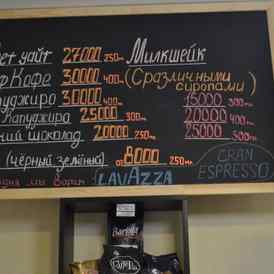 уайт 27000 250мл Милкшейк
Кафе 30000 400мл (С различными
сиропами)
30000 400мл 15000 300мл
Капуджира 25000 250мл 20000 400мл
шоколад 20000 250мл 25000 500мл
(чёрный зелёный) от 8000 250мл GRAN
ESPRESSO
LAVAZZA
Barista